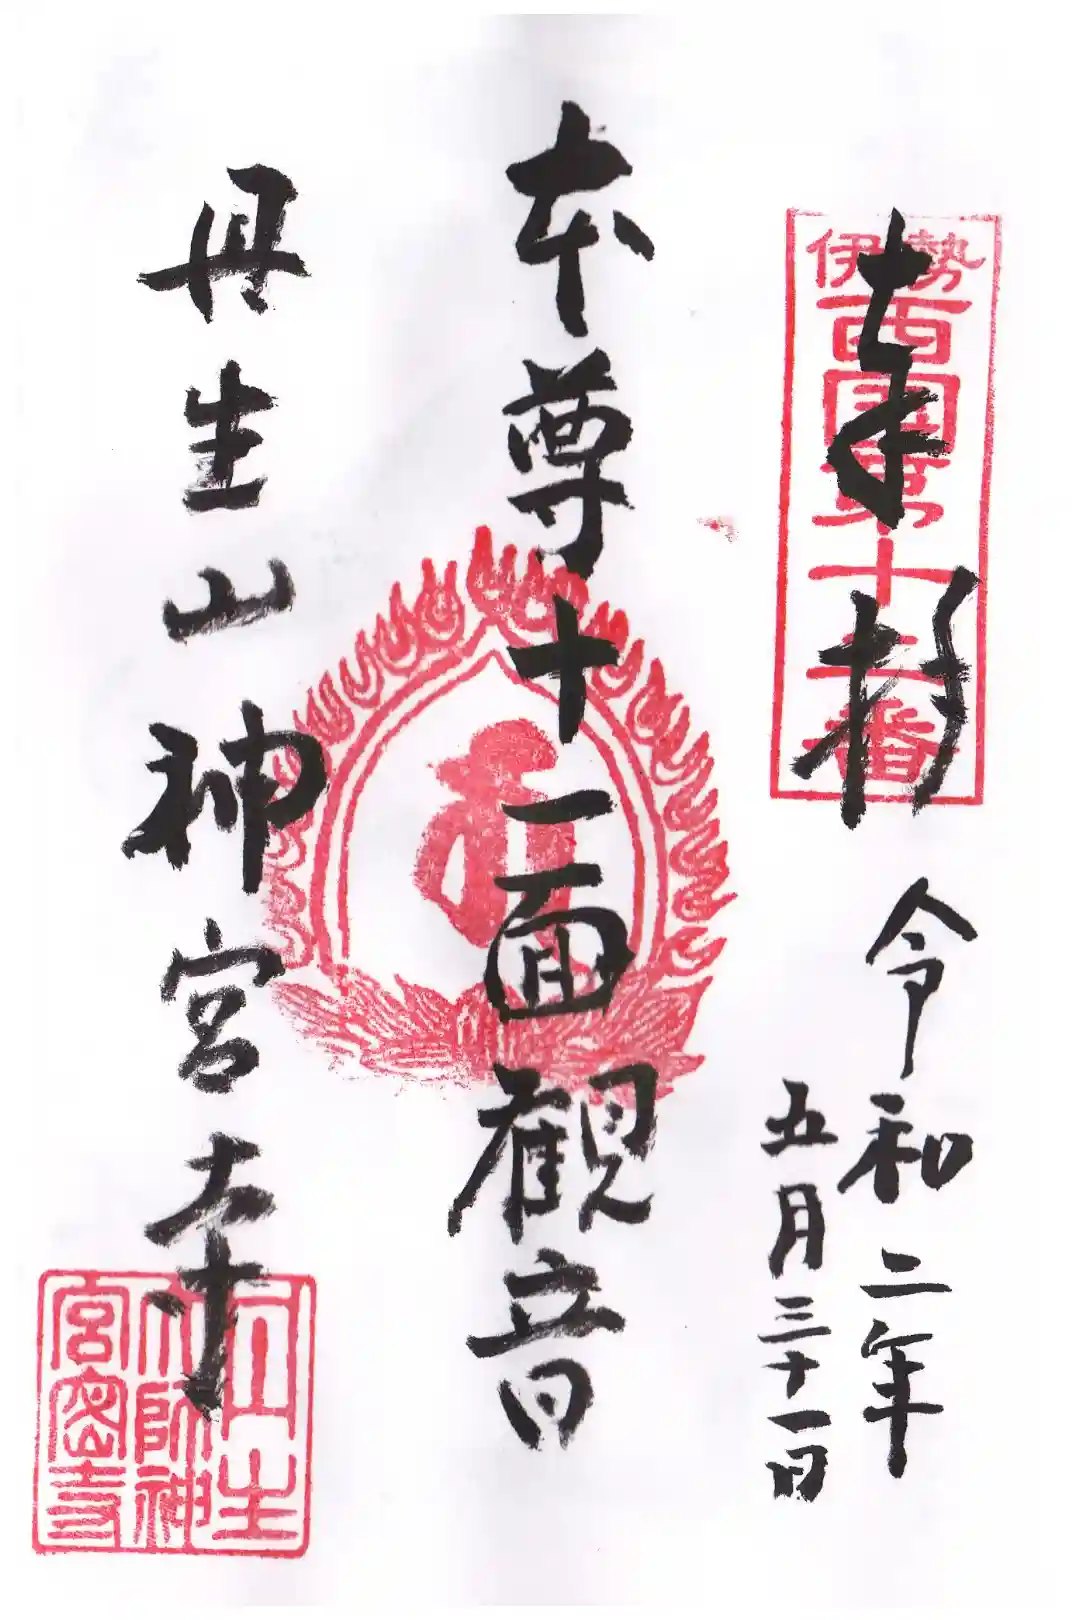 奉拝
伊勢
西國第十二番
令和二年
五月三十一日
本尊十一面観音
丹生山神宮寺
丹生
大師神
宮密寺